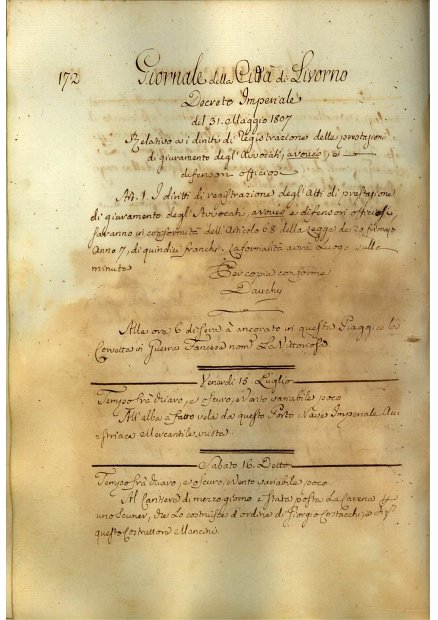 172 Giornale della Città di Livorno
Decreto Imperiale
del 31. Maggio 1807
Relativo a i diritti di Registrazione delle prestazioni
di giuramento degl' Avvocati, avoués e
defensori officiosi
Art. 1. I diritti di registrazione degl' Atti di prestazione
di giuramento degl' Avvocati, avoués e difensori officiosi,
saranno in conformità dell' Articolo 68 della Legge de 22 frimajo
Anno 7, di quindici franchi. La formalità avrà Luogo sulle
minute
Per copia conforme
Dauchy
Alle ore 6 di sera à ancorato in questa Piaggia la
Corvetta in Guerra Francese nom.a La Vittoriosa
Venerdi 15 Luglio
Tempo frà chiaro, e oscuro, e Vento variabile poco
All' alba à fatto vela da questo Porto Nave Imperiale Au
striaca Mercantile vuota.
Sabato 16. Detto
Tempo frà chiaro, e oscuro, e vento variabile poco.
Al Cantiere di mezzo giorno è stata posta La Carena
uno Scuner, che Lo costruisce d'ordine di Giorgio
questo Costruttore Mancini